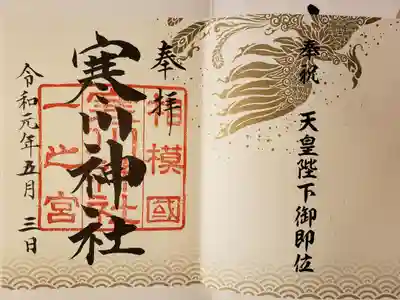 奉祝 天皇陛下御即位
奉拝
寒川神社
相模國
一之宮
令和元年五月三日